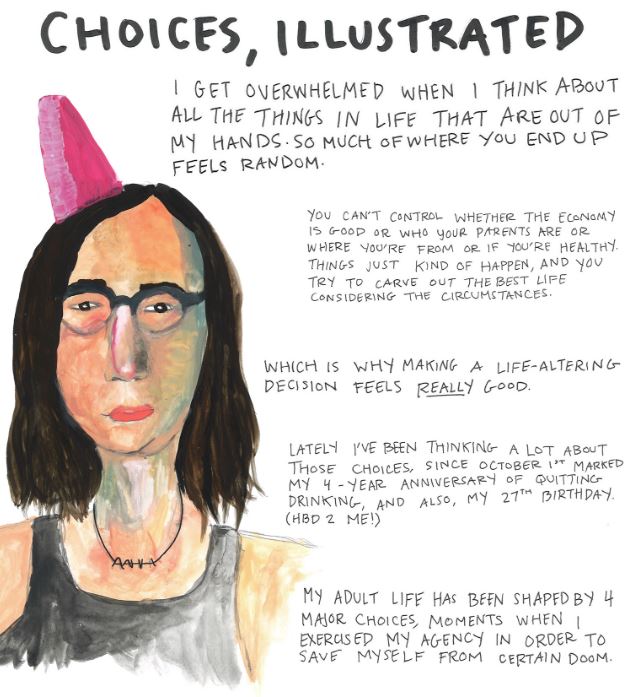 CHOICES, ILLUSTRATED
I GET OVERWHELMED WHEN I THINK ABOUT
ALL THE THINGS IN LIFE THAT ARE OUT OF
MY HANDS. SO MUCH OF WHERE YOU END UP
FEELS RANDOM.
YOU CAN'T CONTROL WHETHER THE ECONOMY
IS GOOD OR WHO YOUR PARENTS ARE OR
WHERE YOU'RE FROM OR IF YOU'RE HEALTHY.
THINGS JUST KIND OF HAPPEN, AND YOU
TRY TO CARVE OUT THE BEST LIFE
CONSIDERING THE CIRCUMSTANCES.
WHICH IS WHY MAKING A LIFE-ALTERING
DECISION FEELS REALLY GOOD.
LATELY I'VE BEEN THINKING A LOT ABOUT
THOSE CHOICES, SINCE OCTOBER 1ST MARKED
MY 4-YEAR ANNIVERSARY OF QUITTING
DRINKING, AND ALSO, MY 27TH BIRTHDAY.
(HBD 2 ME!)
MY ADULT LIFE HAS BEEN SHAPED BY 4
MAJOR CHOICES, MOMENTS WHEN I
EXERCISED MY AGENCY IN ORDER TO
SAVE MYSELF FROM CERTAIN DOOM.